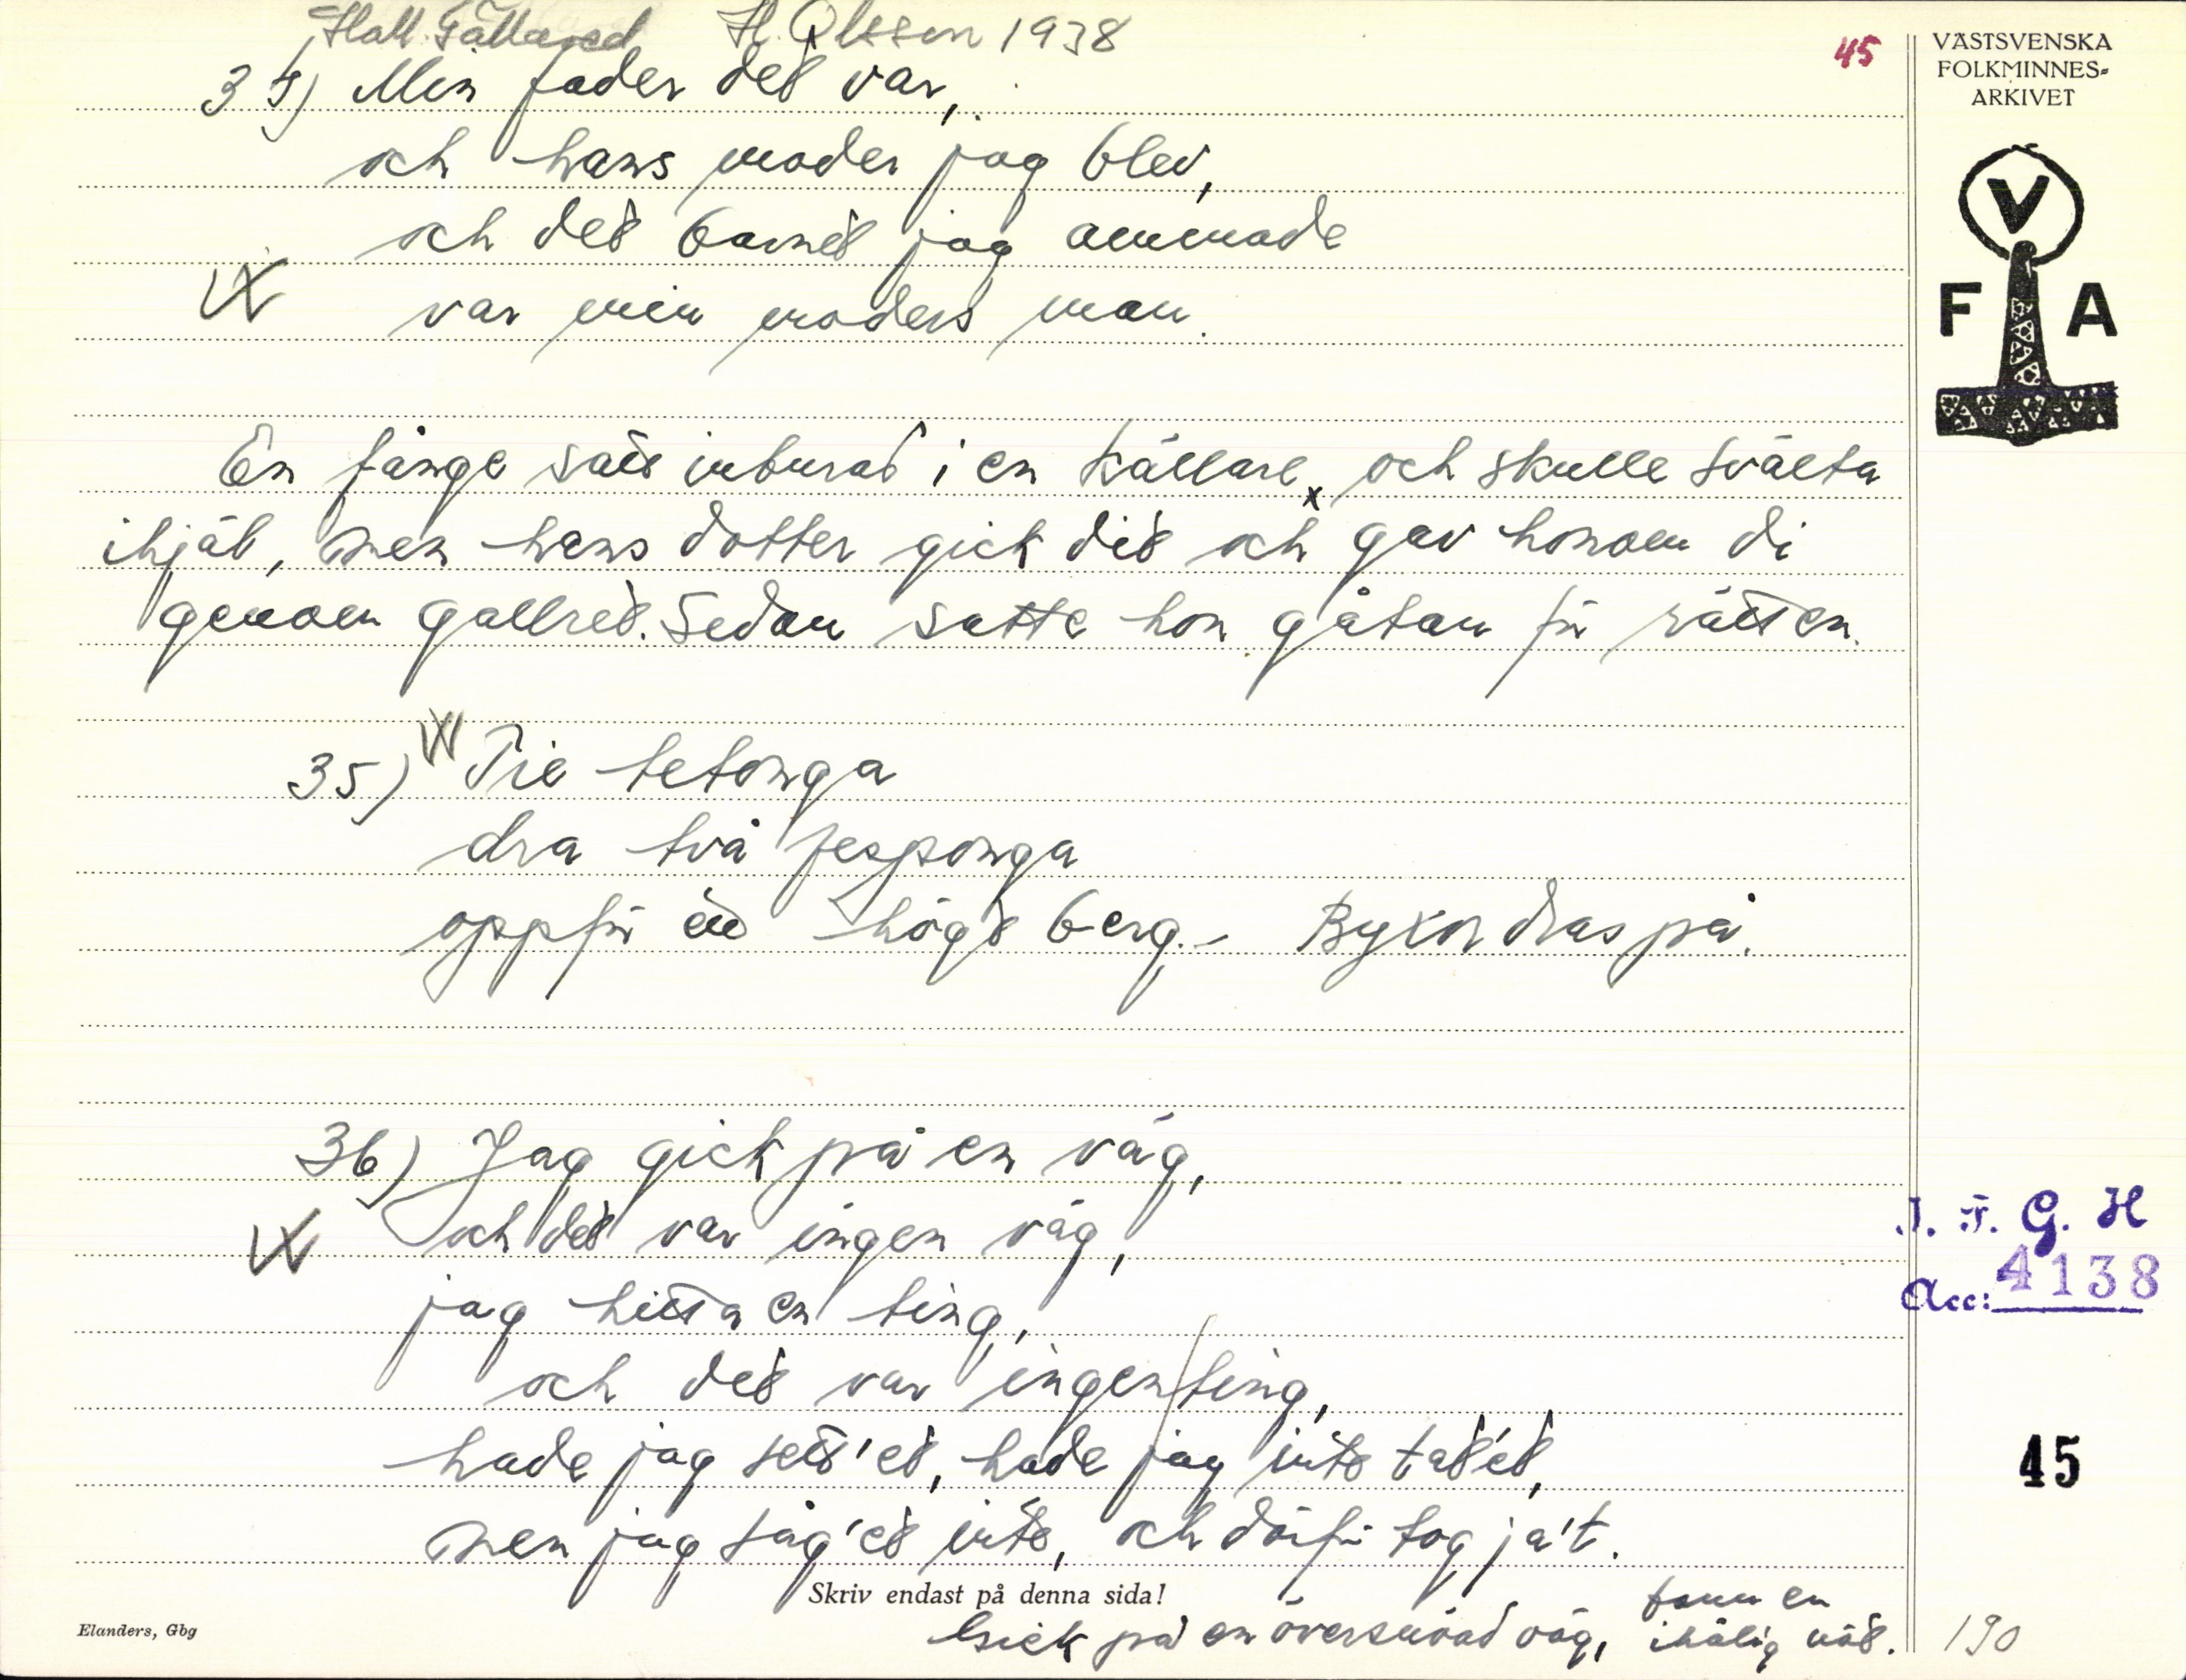 Hall. Fällared H. Olsson 1938
45
VÄSTSVENSKA
FOLKMINNES-
ARKIVET
V
F A
34) Min fader det var,
och hans moder jag blev,
och det barnet jag ammade
var min moders man.
En fånge satt inburad i en källare, och skulle svälta
ihjäl, men hans dotter gick dit och gav honom di
genom gallret. Sedan satte hon gåtan för rätten.
35) Tie tetonga
dra två fesponga
oppför ett högt berg. - Byxor dras på.
36) Jag gick på en väg,
och det var ingen väg,
jag hitta en ting,
och det var ingenting,
hade jag sett'et, hade jag inte tat'et,
men jag såg'et inte, och därför tog ja't.
Skriv endast på denna sida!
Gick på en översnöad väg, fann en
ihålig nöt.
I. F. G. H
Acc: 4138
45
190
Elanders, Gbg